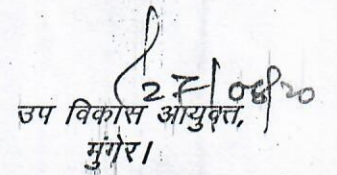 27/08/20
उप विकास आयुक्त,
मुंगेर।